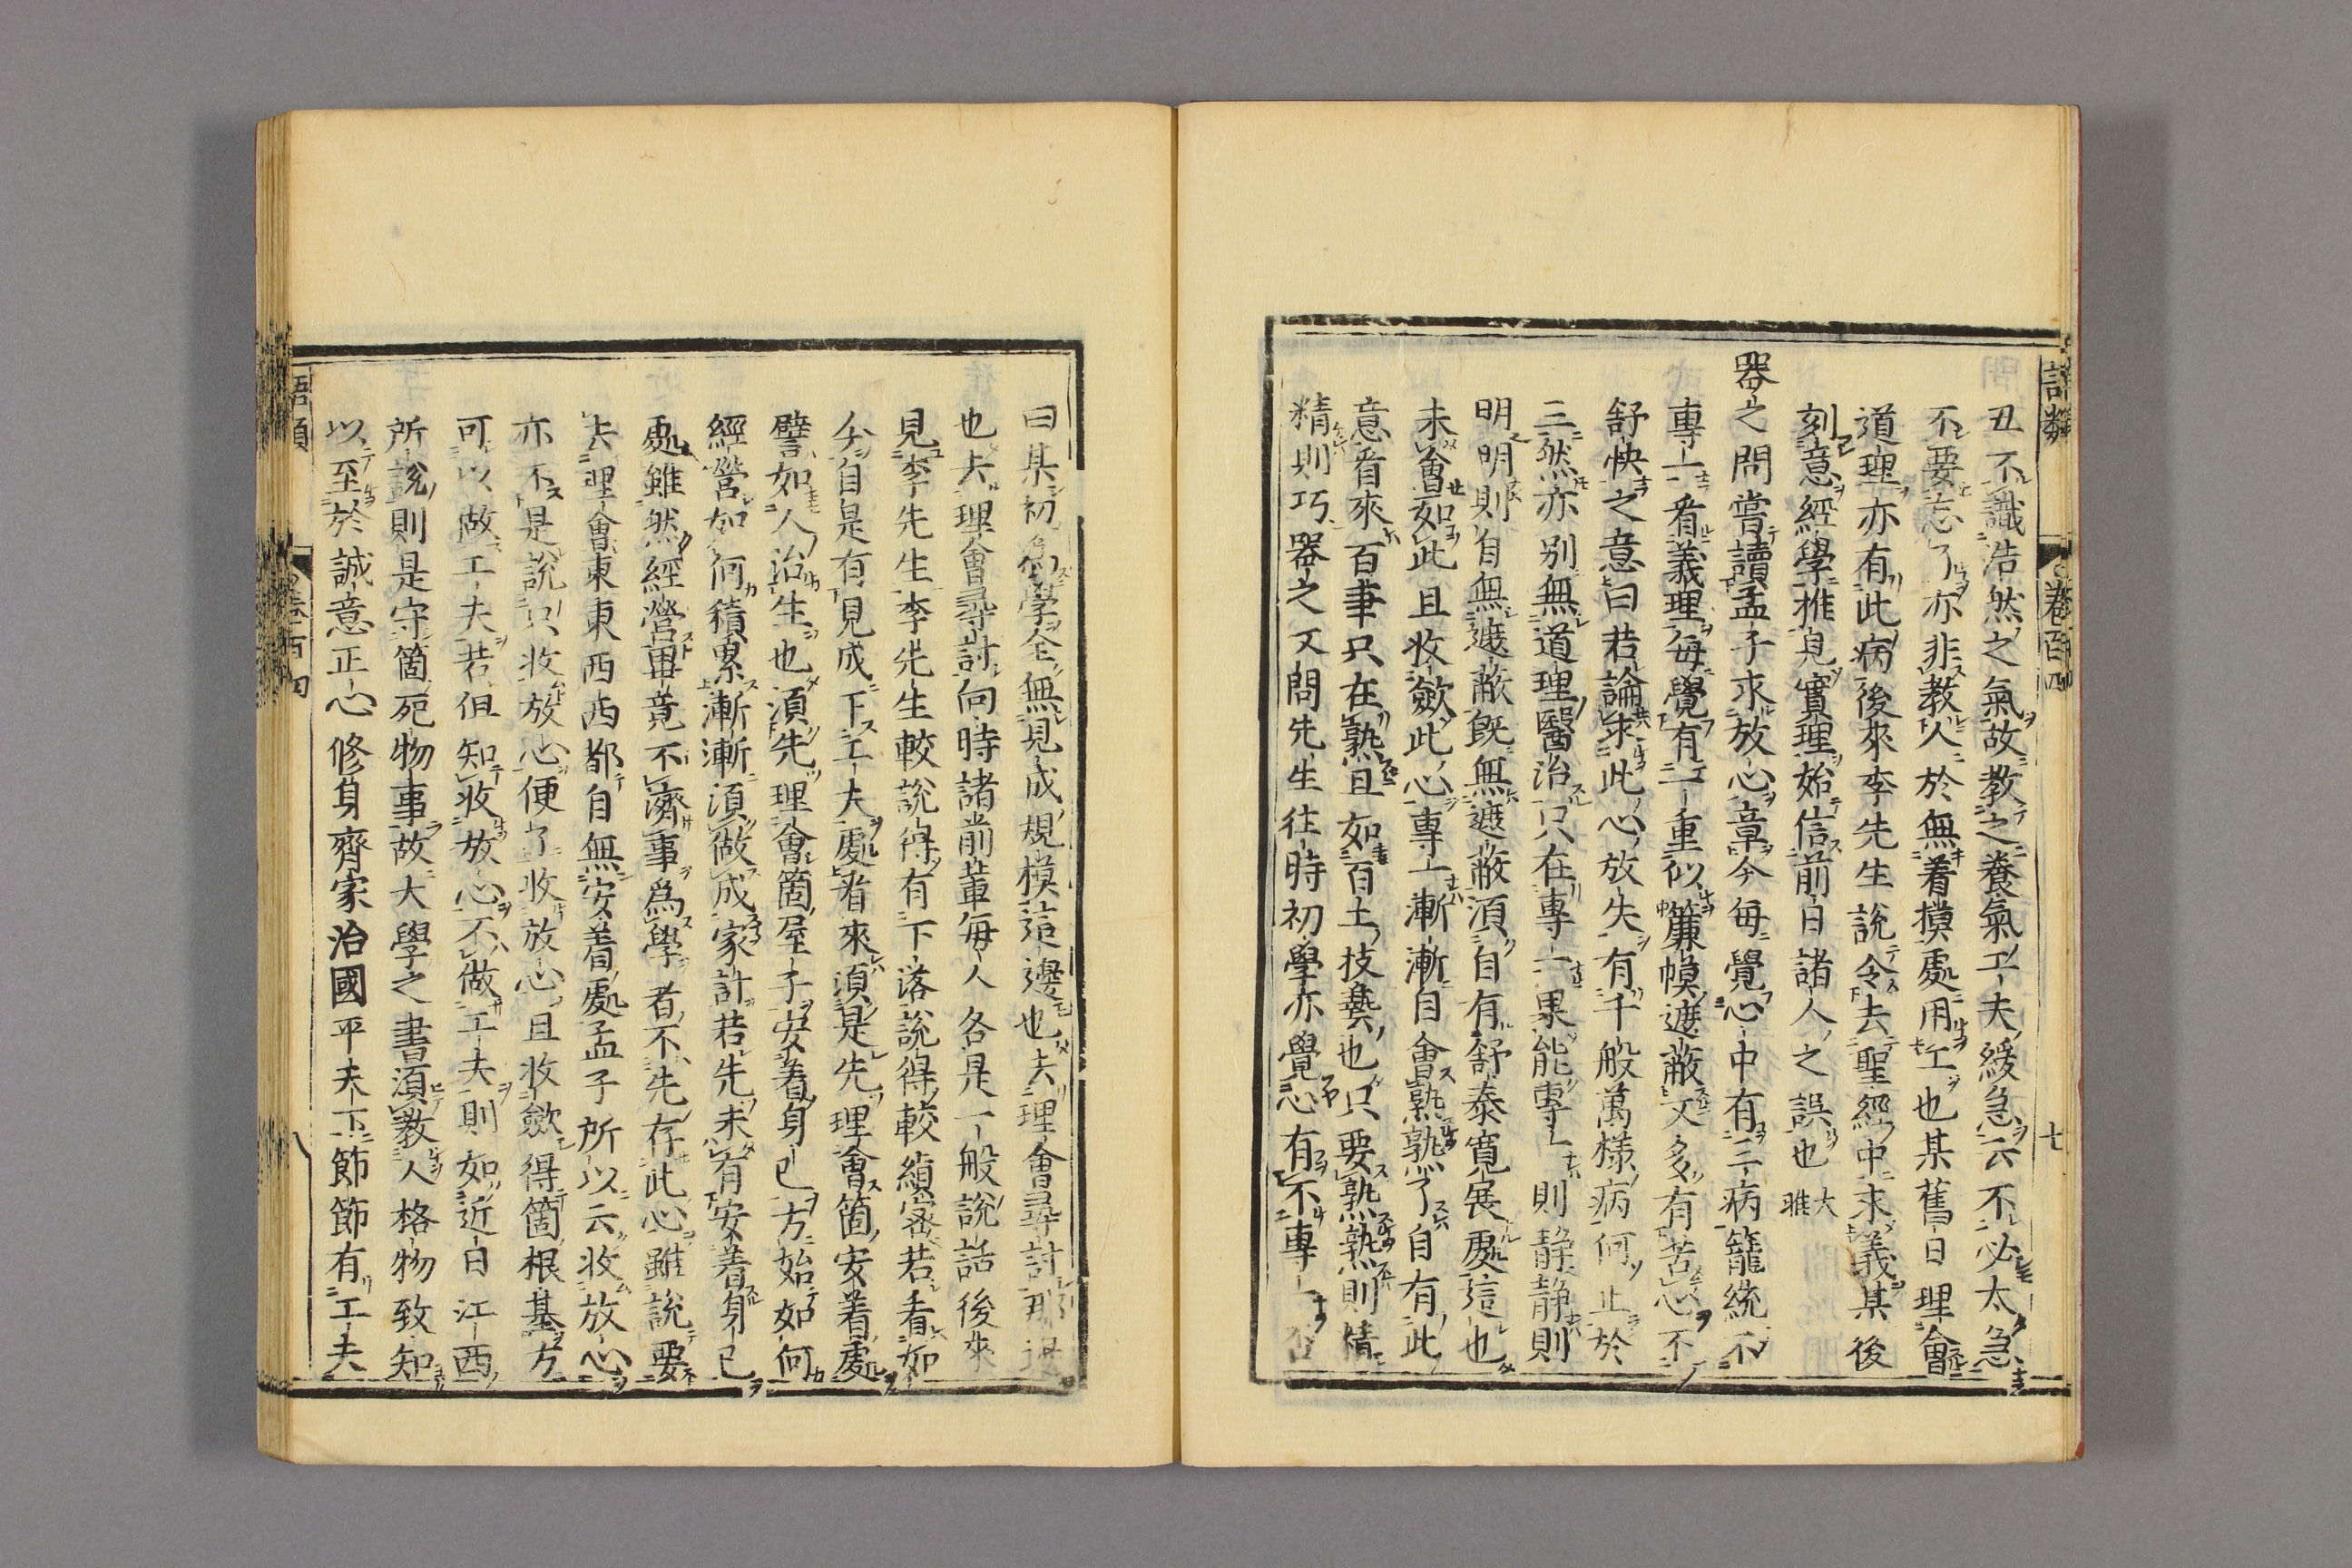 語類 卷百四 七
丑不識浩然之氣故教之養氣工夫緩急云不必太急
不要忘了亦非教人於無着摸處用工也某舊日理會
道理亦有此病後來李先生說令去聖經中求義某後
刻意經學推見實理始信前日諸人之誤也大雅
器之問嘗讀孟子求放心章今每覺心中有二病籠統不
專一看義理每覺有一重似簾幙遮蔽又多有苦心不
舒快之意曰若論求此心放失有千般萬樣病何止於
三然亦别無道理醫治只在專一果能專一則静静則
明明則自無遮蔽旣無遮蔽湏自有舒泰寛展處這也
未會如此且收斂此心專一漸漸自會熟熟了自有此
意看來百事只在熟且如百工技藝也只要熟熟則精
精則巧器之又問先生往時初學亦覺心有不專一否
曰某初爲學全無見成規模這邊也去理會尋討那邊
也去理會尋討向時諸前輩每人各是一般說話後來
見李先生李先生較說得有下落說得較縝宻若看如
今自是有見成下工夫處看來湏是先理會箇安着處
譬如人治生也湏先理會箇屋子安着身已方始如何
經營如何積累漸漸湏做成家計若先未有安着身已
處雖然經營畢竟不濟事爲學者不先存此心雖說要
去理會東東西西都自無安着處孟子所以云收放心
亦不是說只收放心便了收放心且收斂得箇根基方
可以做工夫若但知收放心不做工夫則如近日江西
所說則是守箇死物事故大學之書湏教人格物致知
以至於誠意正心修身齊家治國平天下節節有工夫
語類 卷百四 八